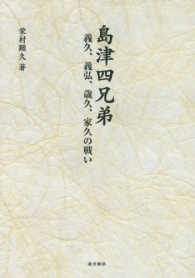 島津四兄弟
義久、義弘、歳久、家久の戦い
栄村顕久 著
南方新社